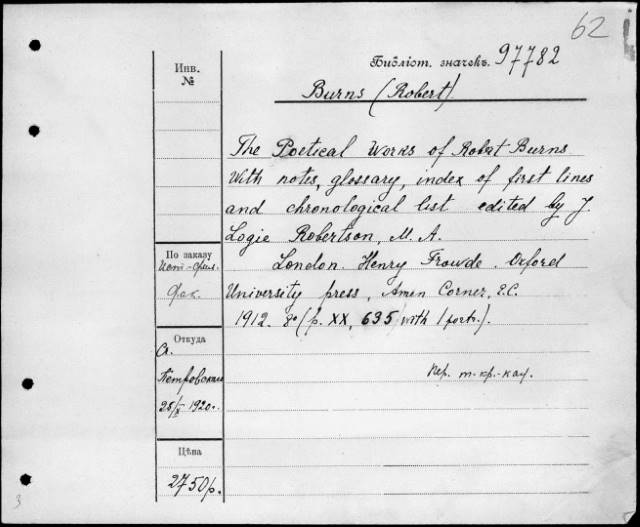 62
Библіот. значекъ. 97782
Инв.
№
Burns (Robert).
The Poetical Works of Robert Burns
With notes, glossary, index of first lines
and chronological list edited by J.
Logie Robertson, M. A.
London. Henry Frowde. Oxford
University press, Amen Corner, E.C.
1912. 8º (p. XX, 635 with 1 portr.).
По заказу
Ист-фил.
фак.
Откуда
Ст.
25/X 1920г.
Цѣна
2750р.
Пер. т-кр.-кат.
3